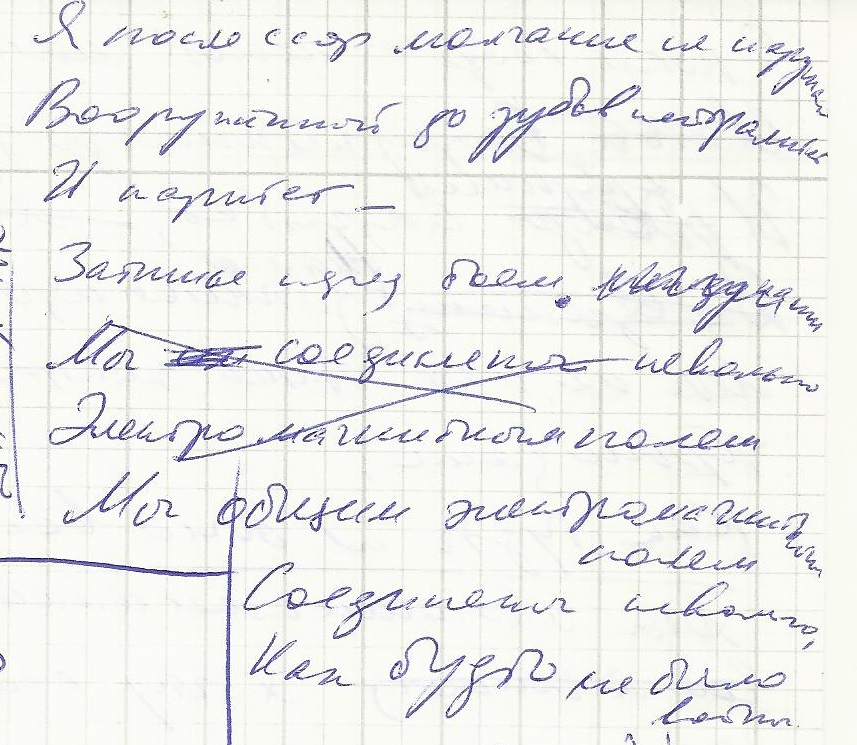 А после ссор молчание и
Вооруженный до зубов нейтралитет
И паритет –
Затишье перед боем.
Мы соединены невольно
Электромагнитным полем
Мы общим электромагнитным
полем
Соединены невольно,
Как будто не было
войны.